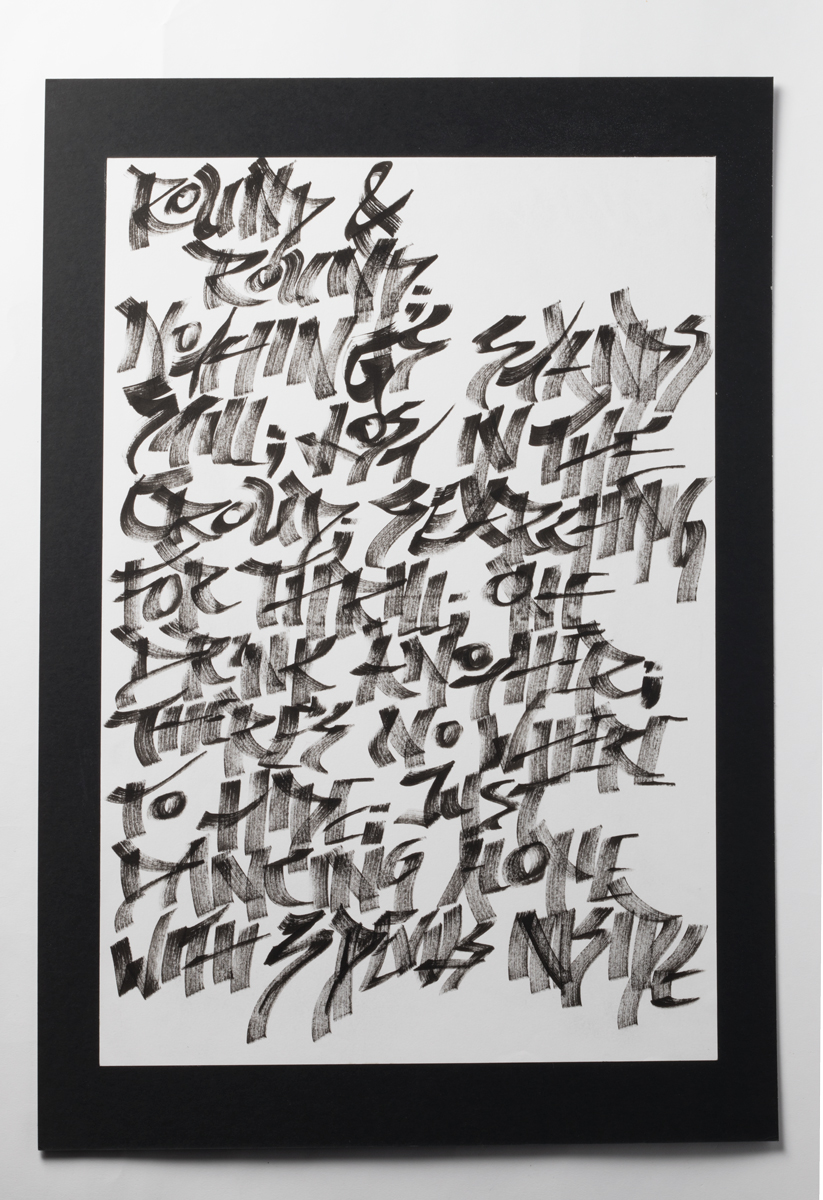 ROUND &
ROUND;
NOTHING'S STANDS
STILL; LOST IN THE
CROWD; SEARCHING
FOR THRILL; ONE
DRINK ANOTHER;
THERE'S NOWHERE
TO HIDE; JUST
DANCING ALONE
WITH INSIDE